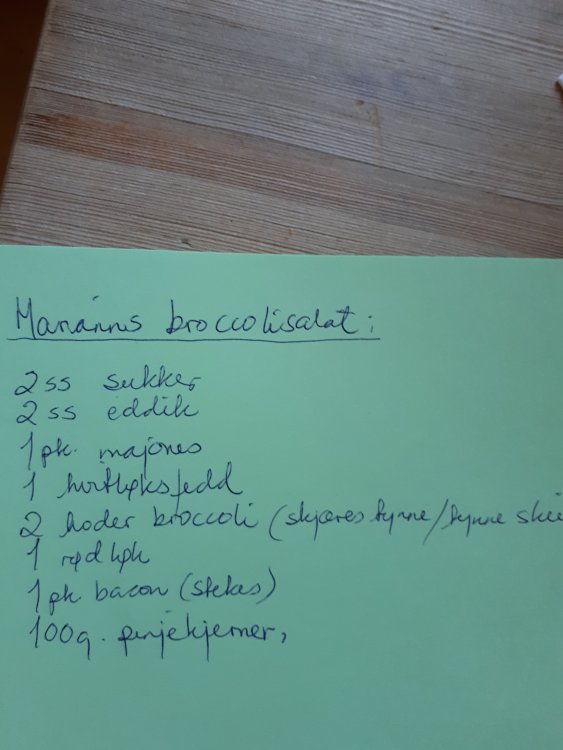 Mariannes broccolisalat:
2 ss sukker
2 ss eddik
1 pk. majones
1 hvitløksfedd
2 hoder broccoli (skjæres tynne/tynne
1 rødløk
1 pk bacon (stekes)
100g. pinjekjerner,